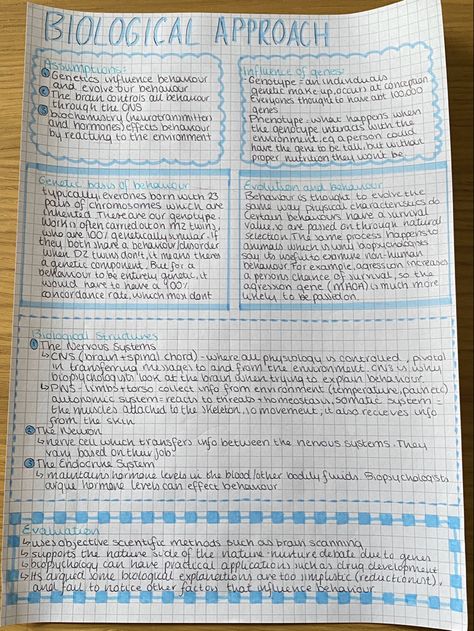 BIOLOGICAL APPROACH
Assumptions:
① Genetics influence behaviour
and evolve our behaviour
② The brain controls all behaviour
through the CNS
③ biochemistry (neurotransmitters
and hormones) effects behaviour
by reacting to the environment
Influence of genes:
Genotype = an individuals
genetic make up, occurs at conception
Everyones thought to have abt 100,000
genes
Phenotype = what happens when
the genotype interacts with the
environment, e.g a person could
have the gene to be tall, but without
proper nutrition they wont be
Genetic basis of behaviour
Typically, everyones born with 23
pairs of chromosomes which are
inherited. These are our genotype.
Work is often carried out on MZ twins,
who are 100% genetically similar. If
they both share a behaviour/disorder
when DZ twins don't, it means theres
a genetic component. But for a
behaviour to be entirely genetic, it
would have to have a 100%
concordance rate, which most dont
Evolution and behaviour
Behaviour is thought to evolve the
same way physical characteristics do
Certain behaviours have a survival
value, so are passed on through natural
selection. The same process happens to
animals which is why biopsychologists
say its useful to examine non-human
behaviour. For example, agression increases
a persons chance of survival, so the
agression gene (MAOA) is much more
likely to be passed on.
Biological Structures
① The Nervous Systems
↳ CNS (brain + spinal chord) - where all physiology is controlled, pivotal
in transferring messages to and from the environment. CNS is why
biopsychologists look at the brain when trying to explain behaviour
↳ PNS - limbs + torso collect info from environment (temperature, pain etc)
Autonomic system = reacts to threats + homeostasis, somatic system =
the muscles attached to the skeleton, so movement, it also recieves info
from the skin
② The Neuron
↳ nerve cell which transfers info between the nervous systems. They
vary based on their job
③ The Endocrine System
↳ maintains hormone levels in the blood/other bodily fluids. Biopsychologists
argue hormone levels can effect behaviour
Evaluation
↳ uses objective scientific methods such as brain scanning
↳ supports the nature side of the nature-nurture debate due to genes
↳ biopsychology can have practical applications such as drug development
↳ Its argued some biological explanations are too simplistic (reductionist),
and fail to notice other factors that influence behaviour